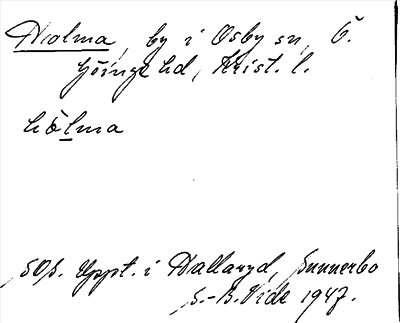 Holma, by i Osby sn, Ö.
Göinge hd, Krist. l.
hòlma
SOÅ. Uppt. i Hallaryd, Sunnerbo
S.-B. Vide 1947.